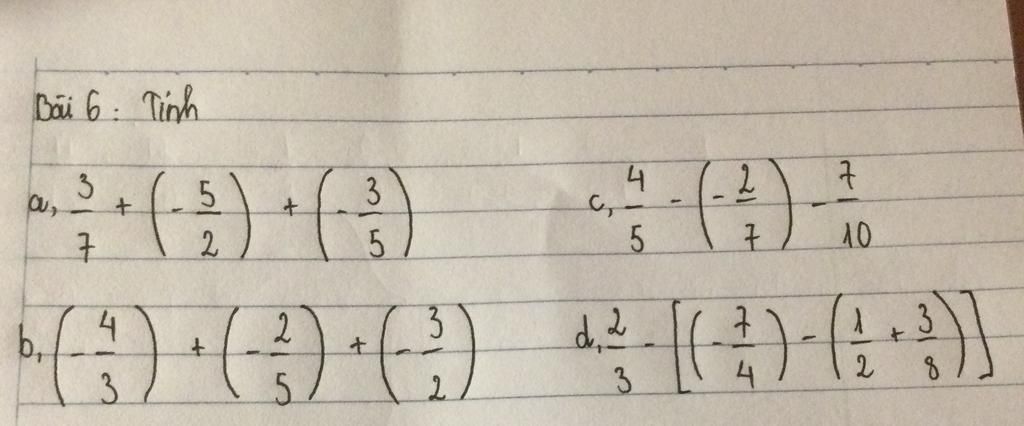 Bài 6 : Tính
a, 3/7 + (-5/2) + (-3/5)
c, 4/5 - (-2/7) - 7/10
b, (-4/3) + (-2/5) + (-3/2)
d, 2/3 - [(-7/4) - (1/2 + 3/8)]